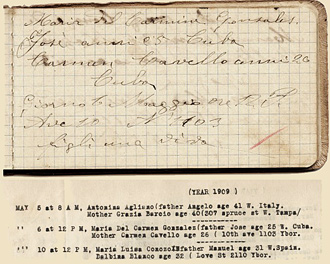 Maria del Carmine Gonzales.
José anni 25 Cuba
Carmen Cavello anni 26
Cuba
Giorno 6 Maggio ore 12 P.
Ave 10 N 1103
figli una viva
(YEAR 1909 )
MAY 5 at 8 AM, Antonina Agliano(father Angelo age 41 W. Italy.
Mother Grazia Barcio age 40(207 spruce st W. Tampa/
" 6 at 12 P,M, Maria Del Carmen Gonzales(father Jose age 25 W. Cuba.
Mother Carmen Cavello age 26 ( 10th ave 1103 Ybor.
" 10 at 12 P,M, Maria Luisa father Manuel age 31 W.Spain.
Balbina Blanco age 32 ( Love St 2110 Ybor.